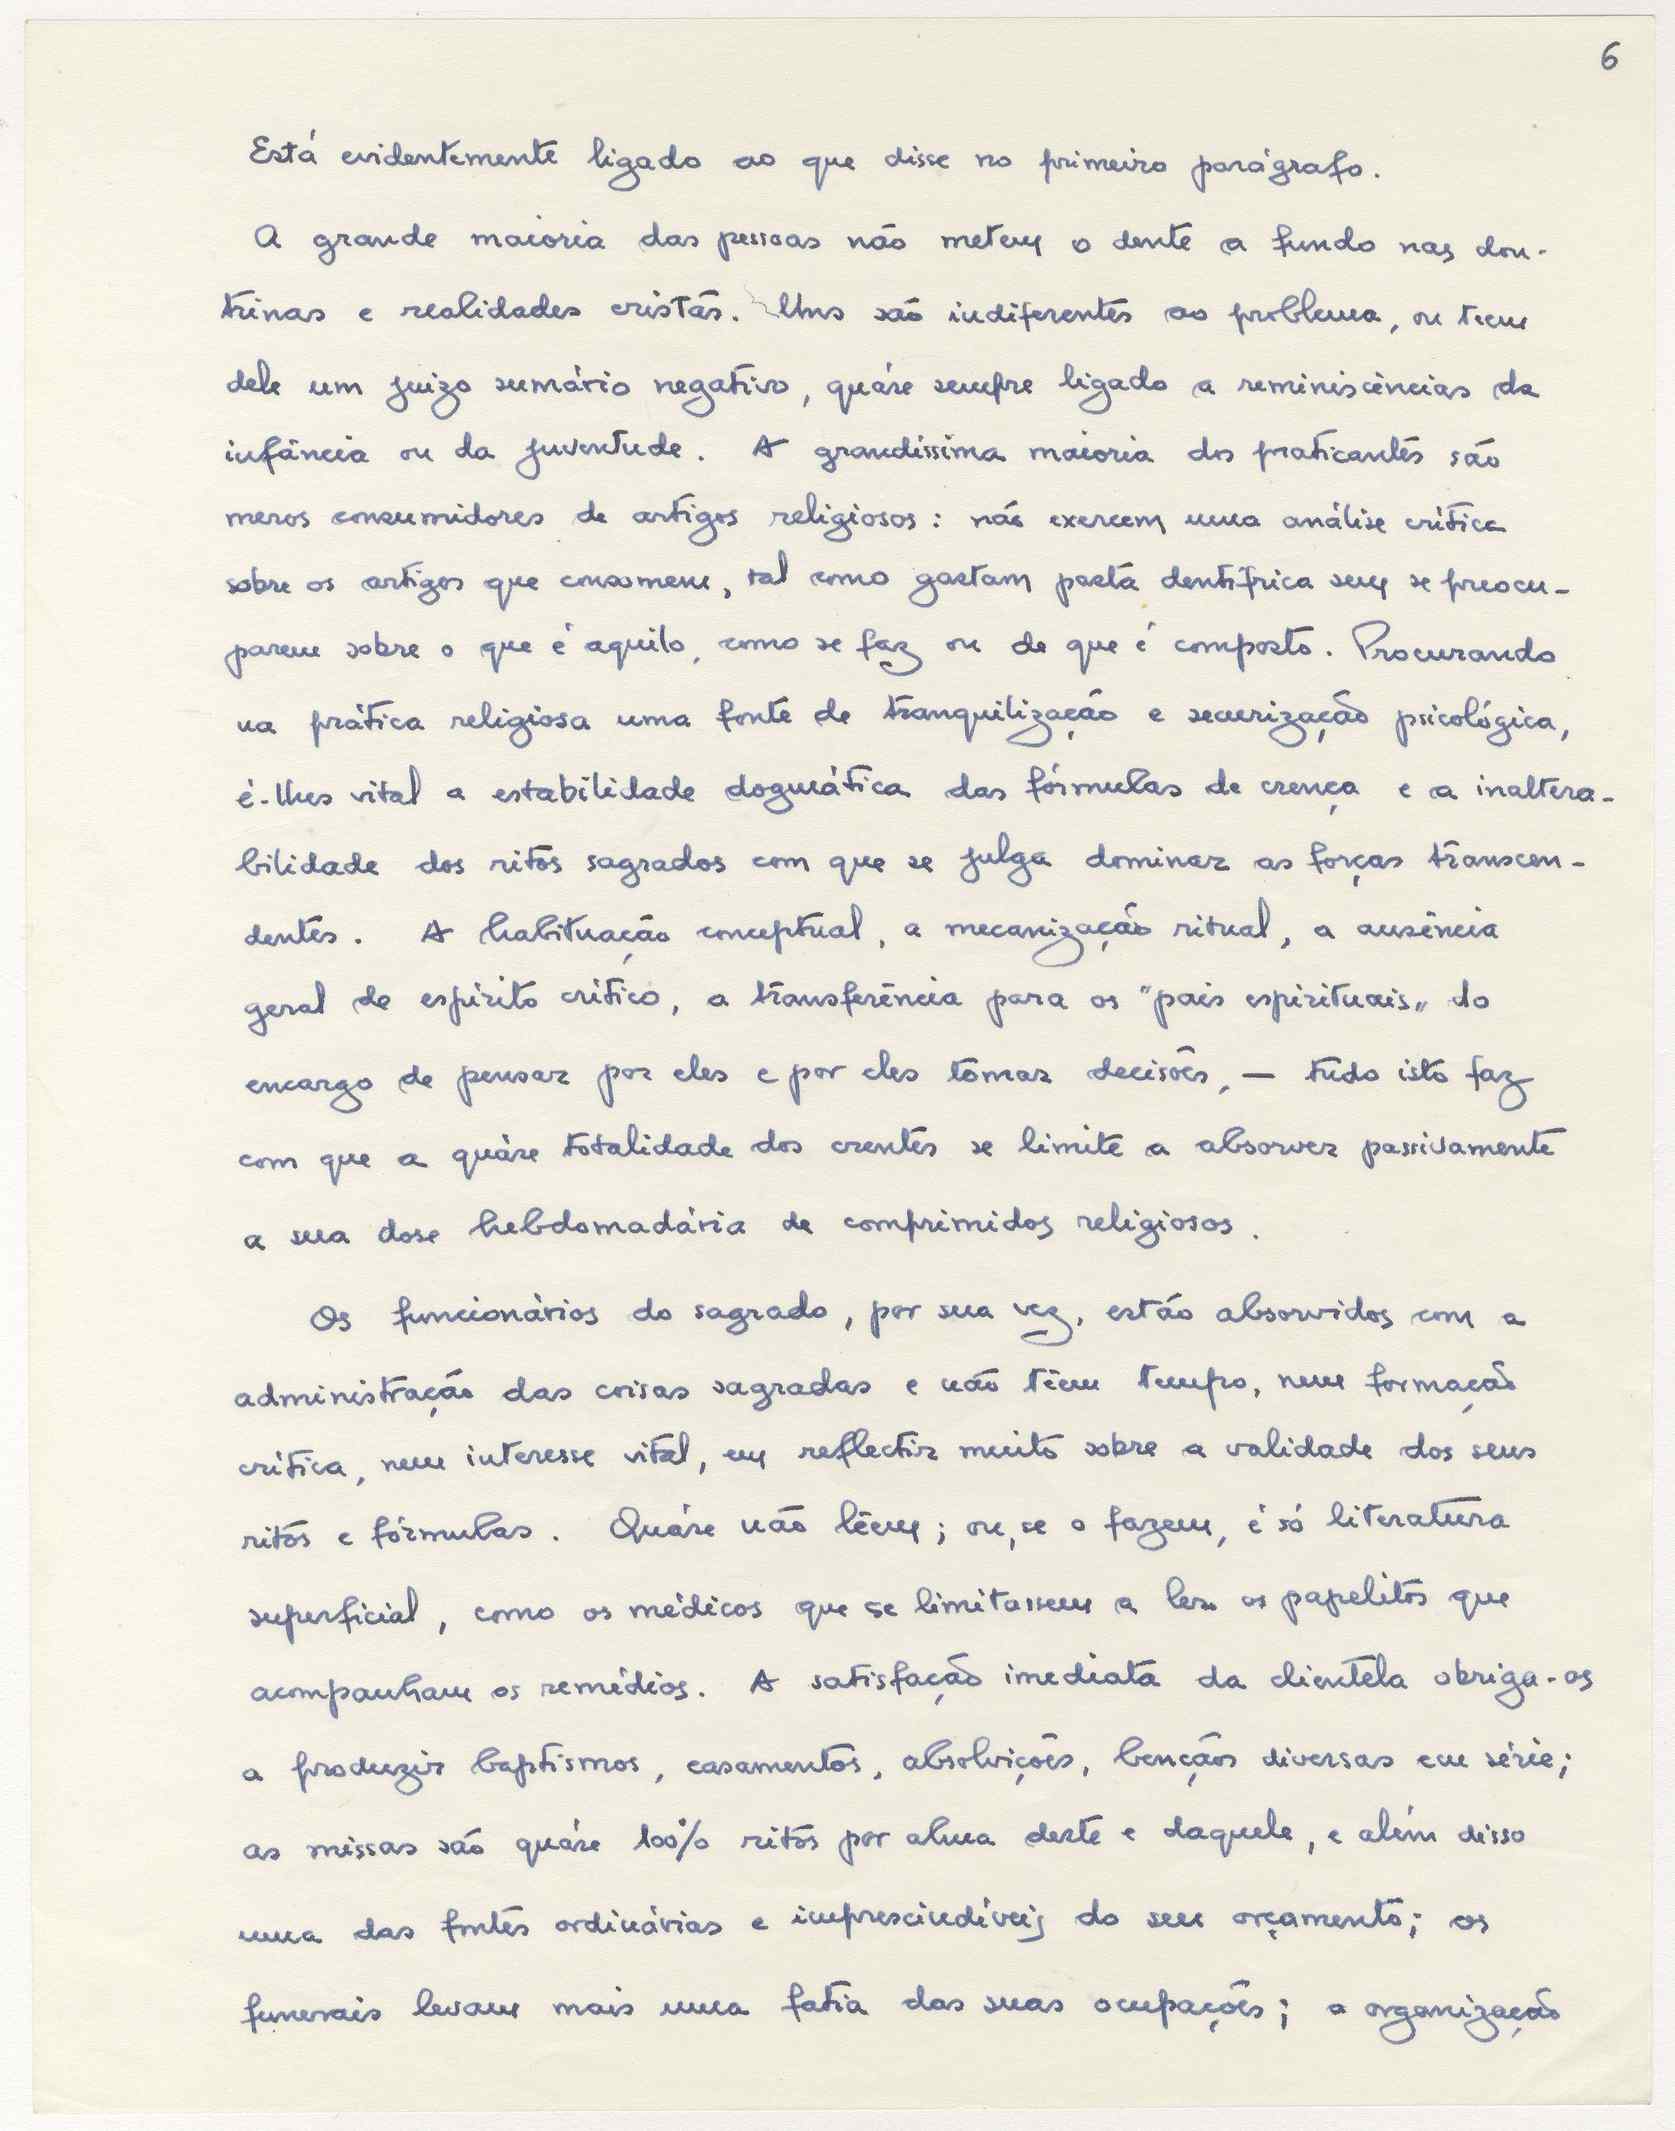 6
Está evidentemente ligado ao que disse no primeiro parágrafo.
A grande maioria das pessoas não metem o dente a fundo nas dou-
trinas e realidades cristãs. Uns são indiferentes ao problema, ou teem
dele um juizo sumário negativo, quáse sempre ligado a reminiscências da
infância ou da juventude. A grandíssima maioria dos praticantes são
meros consumidores de artigos religiosos: não exercem uma análise crítica
sobre os artigos que consomem, tal como gastam pasta dentífrica sem se preocu-
parem sobre o que é aquilo, como se faz ou de que é composto. Procurando
na prática religiosa uma fonte de tranquilização e securização psicológica,
é-lhes vital a estabilidade dogmática das fórmulas de crença e a inaltera-
bilidade dos ritos sagrados com que se julga dominar as forças transcen-
dentes. A habituação conceptual, a mecanização ritual, a ausência
geral de espírito crítico, a transferência para os "pais espirituais„ do
encargo de pensar por eles e por eles tomar decisões, — tudo isto faz
com que a quáse totalidade dos crentes se limite a absorver passivamente
a sua dose hebdomadária de comprimidos religiosos.
Os funcionários do sagrado, por sua vez, estão absorvidos com a
administração das coisas sagradas e não têem tempo, nem formação
crítica, nem interesse vital, em reflectir muito sobre a validade dos seus
ritos e fórmulas. Quáse não lêem; ou, se o fazem, é só literatura
superficial, como os médicos que se limitassem a ler os papelitos que
acompanham os remédios. A satisfação imediata da clientela obriga-os
a produzir baptismos, casamentos, absolvições, bençãos diversas em série;
as missas são quáse 100% ritos por alma deste e daquele, e além disso
uma das fontes ordinárias e imprescindíveis do seu orçamento; os
funerais levam mais uma fatia das suas ocupações; a organização